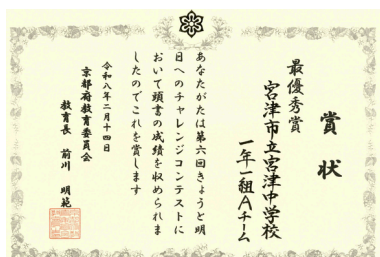 賞状
最優秀賞
宮津市立宮津中学校
一年一組Aチーム
あなたがたは第六回きょうと明
日へのチャレンジコンテストに
おいて頭書の成績を収められま
したのでこれを賞します
令和八年二月十四日
京都府教育委員会
教育長 前川 明範